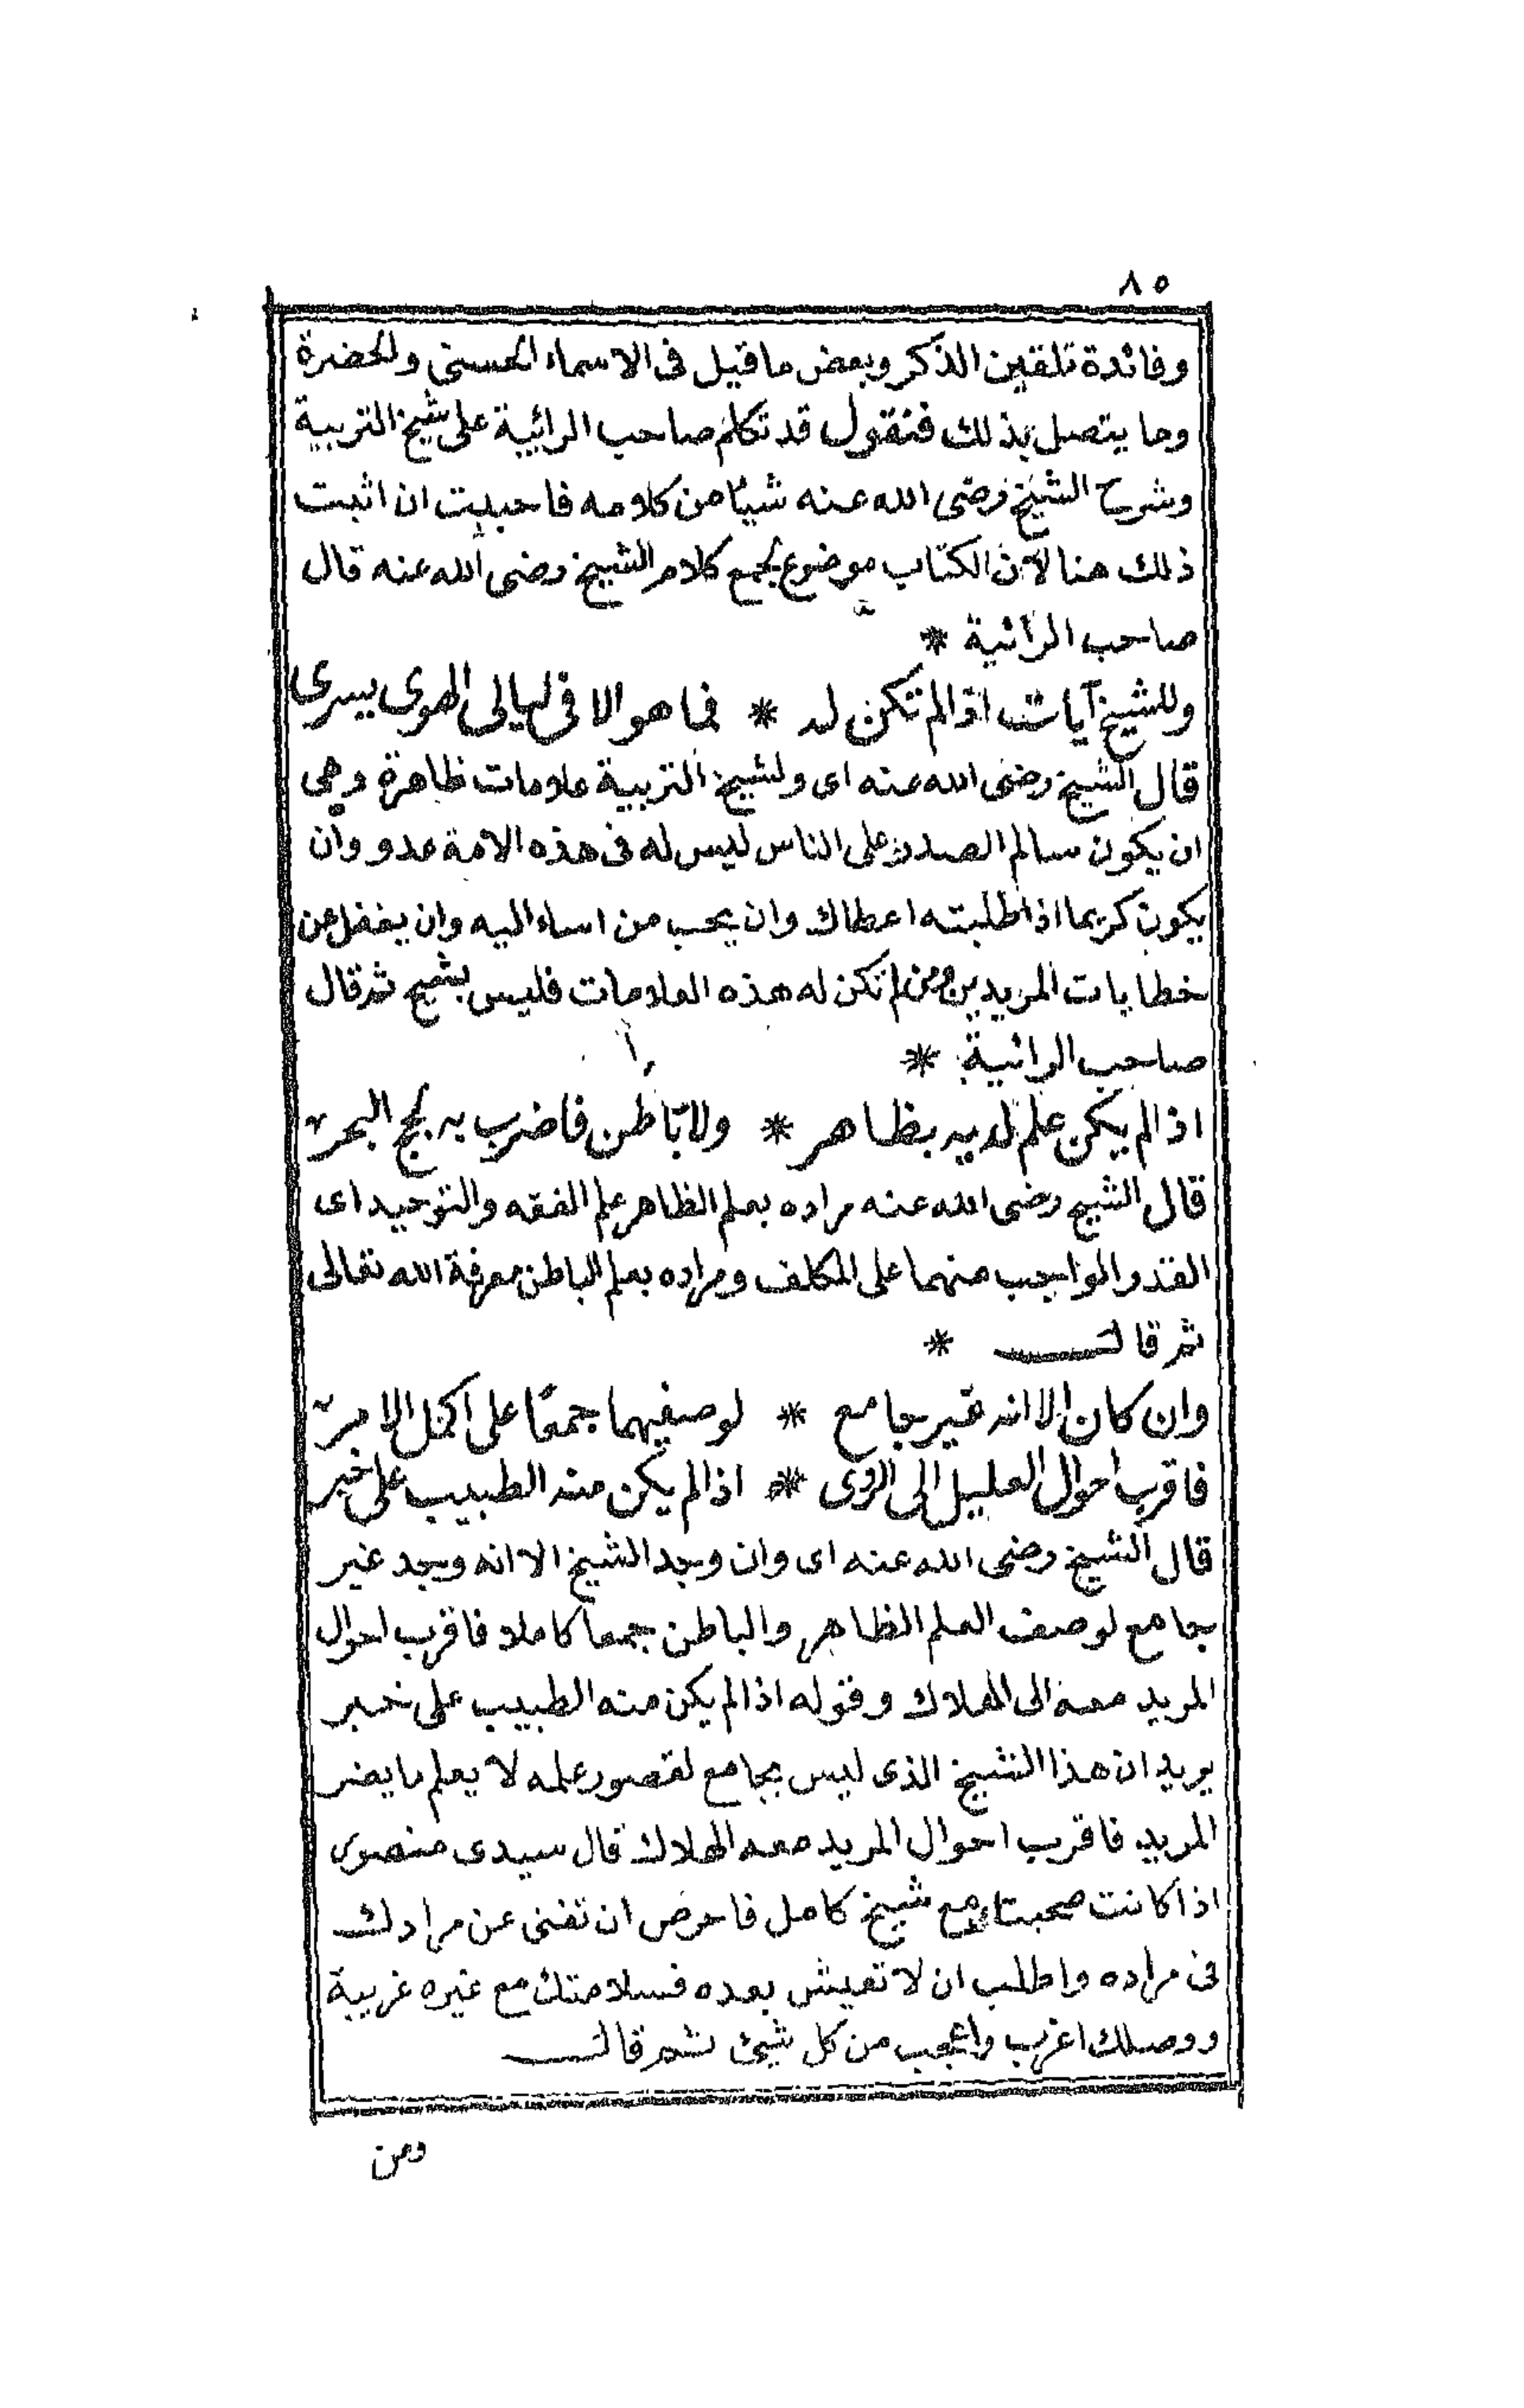 ٨٥
وفائدة تلقين الذكر وبعض ما قيل فى الاسماء الحسنى والحضرة
وما يتصل بذلك فنقول قد تكلم صاحب الرائية على شيخ التربية
وشرح الشيخ رضى الله عنه شيئا من كلامه فاحببت ان اثبت
ذلك هنا لان الكتاب موضوع لجمع كلام الشيخ رضى الله عنه قال
صاحب الرائية *
وللشيخ آيات اذا لم تكن له * فما هو الا فى ليالى الهوى يسرى
قال الشيخ رضى الله عنه اى ولشيخ التربية علامات ظاهرة وهى
ان يكون سالم الصدر على الناس ليس له فى هذه الامة عدو وان
يكون كريما اذا طلبته اعطاك وان يحب من اساء اليه وان يغفل عن
خطايات المريدين ومن لم تكن له هذه العلامات فليس بشيخ ثم قال
صاحب الرائية *
اذا لم يكن علم لديه بظاهر * ولا باطن فاضرب به لجج البحر
قال الشيخ رضى الله عنه مراده بعلم الظاهر علم الفقه والتوحيد اى
القدر الواجب منهما على المكلف ومراده بعلم الباطن معرفة الله تعالى
ثم قال *
وان كان الا انه غير جامع * لوصفيهما جمعًا على اكمل الامر
فاقرب احوال العليل الى الردى * اذا لم يكن منه الطبيب على خبر
قال الشيخ رضى الله عنه اى وان وجد الشيخ الا انه وجد غير
جامع لوصف العلم الظاهر والباطن جمعا كاملا فاقرب احوال
المريد معه الى الهلاك وقوله اذا لم يكن منه الطبيب على خبر
يريد ان هذا الشيخ الذى ليس بجامع لقصور علمه لا يعلم ما يضر
المريد فاقرب احوال المريد معه الهلاك قال سيدى منصور
اذا كانت صحبتك مع شيخ كامل فاحرص ان تفنى عن مرادك
فى مراده واطلب ان لا تعيش بعده فسلامتك مع غيره غريبة
ووصلك اغرب واعجب من كل شيئ ثم قال
ومن